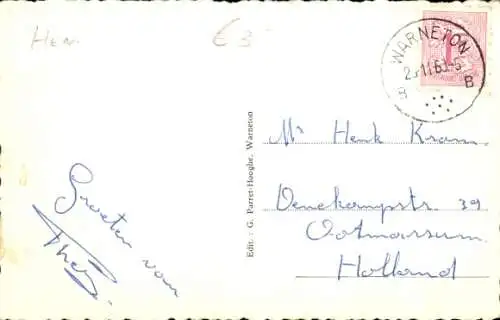 Hen
€ 3-
WARNETON
B B
Groeten van
Theo.
Edit. : G. Parret-Hooghe, Warneton
Mr Henk Kram.
Denekampstr. 39
Ootmarsum.
Holland